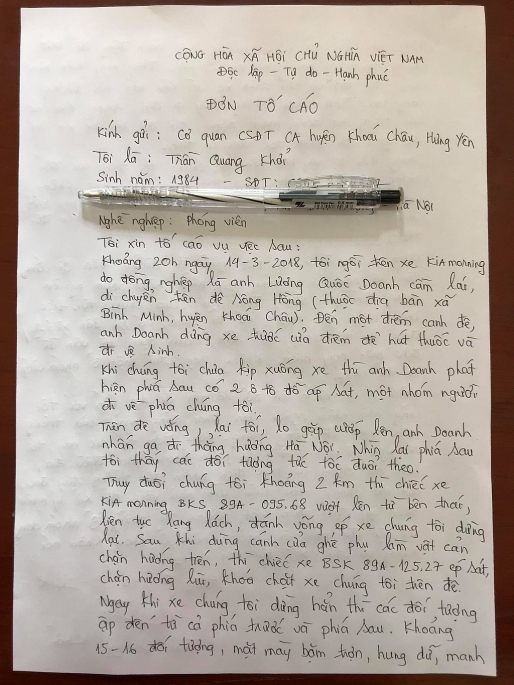 CỘNG HÒA XÃ HỘI CHỦ NGHĨA VIỆT NAM
Độc lập - Tự do - Hạnh phúc
ĐƠN TỐ CÁO
Kính gửi : Cơ quan CSĐT CA huyện Khoái Châu, Hưng Yên
Tôi là : Trần Quang Khởi
Sinh năm: 1984 - SĐT:
Nội
Nghề nghiệp: Phóng viên
Tôi xin tố cáo vụ việc sau:
Khoảng 20h ngày 14-3-2018, tôi ngồi trên xe KIA morning
do đồng nghiệp là anh Lương Quốc Doanh cầm lái,
di chuyển trên đê sông Hồng (thuộc địa bàn xã
Bình Minh, huyện Khoái Châu). Đến một điếm canh đê,
anh Doanh dừng xe trước cửa điếm để hút thuốc và
đi vệ sinh.
Khi chúng tôi chưa kịp xuống xe thì anh Doanh phát
hiện phía sau có 2 ô tô đỗ áp sát, một nhóm người
đi về phía chúng tôi.
Trên đê vắng, lại tối, lo gặp cướp lên anh Doanh
nhấn ga đi thẳng hướng Hà Nội. Nhìn lại phía sau
tôi thấy các đối tượng tức tốc đuổi theo.
Truy đuổi chúng tôi khoảng 2 km thì chiếc xe
KIA morning BKS 89A - 095.68 vượt lên từ bên trái,
liên tục lạng lách, đánh võng ép xe chúng tôi dừng
lại. Sau khi dùng cánh cửa ghế phụ làm vật cản
chặn hướng trên, thì chiếc xe BSK 89A-125.27 ép sát,
chặn hướng lùi, khoá chặt xe chúng tôi trên đê.
Ngay khi xe chúng tôi dừng hẳn thì các đối tượng
ập đến từ cả phía trước và phía sau. Khoảng
15-16 đối tượng, mặt mày bặm trợn, hung dữ, manh